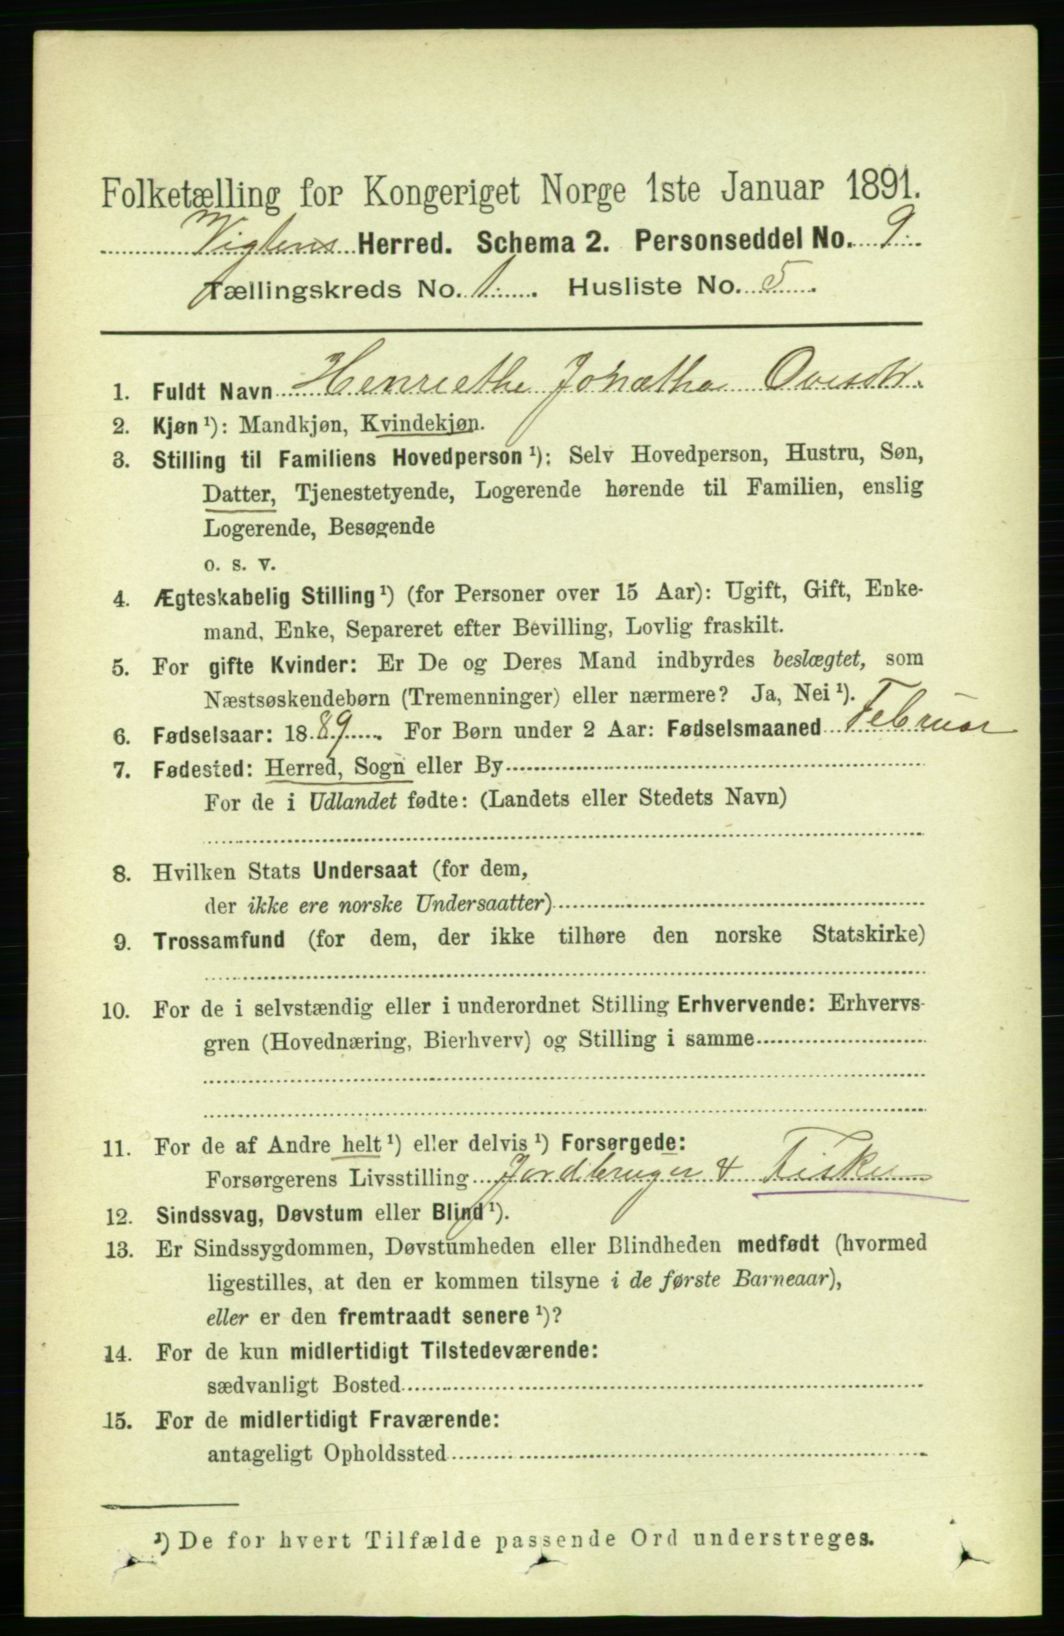 Folketælling for Kongeriget Norge 1ste Januar 1891.
Vigtens Herred. Schema 2. Personseddel No. 9.
Tællingskreds No. 1. Husliste No. 5.
1. Fuldt Navn Henriethe Jonetha
2. Kjøn ¹): Mandkjøn, Kvindekjøn.
3. Stilling til Familiens Hovedperson ¹): Selv Hovedperson, Hustru, Søn,
Datter, Tjenestetyende, Logerende hørende til Familien, enslig
Logerende, Besøgende
o. s. v.
4. Ægteskabelig Stilling ¹) (for Personer over 15 Aar): Ugift, Gift, Enke-
mand, Enke, Separeret efter Bevilling, Lovlig fraskilt.
5. For gifte Kvinder: Er De og Deres Mand indbyrdes beslægtet, som
Næstsøskendebørn (Tremenninger) eller nærmere? Ja, Nei ¹).
6. Fødselsaar: 1889. For Børn under 2 Aar: Fødselsmaaned Februar
7. Fødested: Herred, Sogn eller By
For de i Udlandet fødte: (Landets eller Stedets Navn)
8. Hvilken Stats Undersaat (for dem,
der ikke ere norske Undersaatter)
9. Trossamfund (for dem, der ikke tilhøre den norske Statskirke)
10. For de i selvstændig eller i underordnet Stilling Erhvervende: Erhvervs-
gren (Hovednæring, Bierhverv) og Stilling i samme
11. For de af Andre helt ¹) eller delvis ¹) Forsørgede:
Forsørgerens Livsstilling Jordbruger & Fisker
12. Sindssvag, Døvstum eller Blind ¹).
13. Er Sindssygdommen, Døvstumheden eller Blindheden medfødt (hvormed
ligestilles, at den er kommen tilsyne i de første Barneaar),
eller er den fremtraadt senere ¹)?
14. For de kun midlertidigt Tilstedeværende:
sædvanligt Bosted
15. For de midlertidigt Fraværende:
antageligt Opholdssted
¹) De for hvert Tilfælde passende Ord understreges.